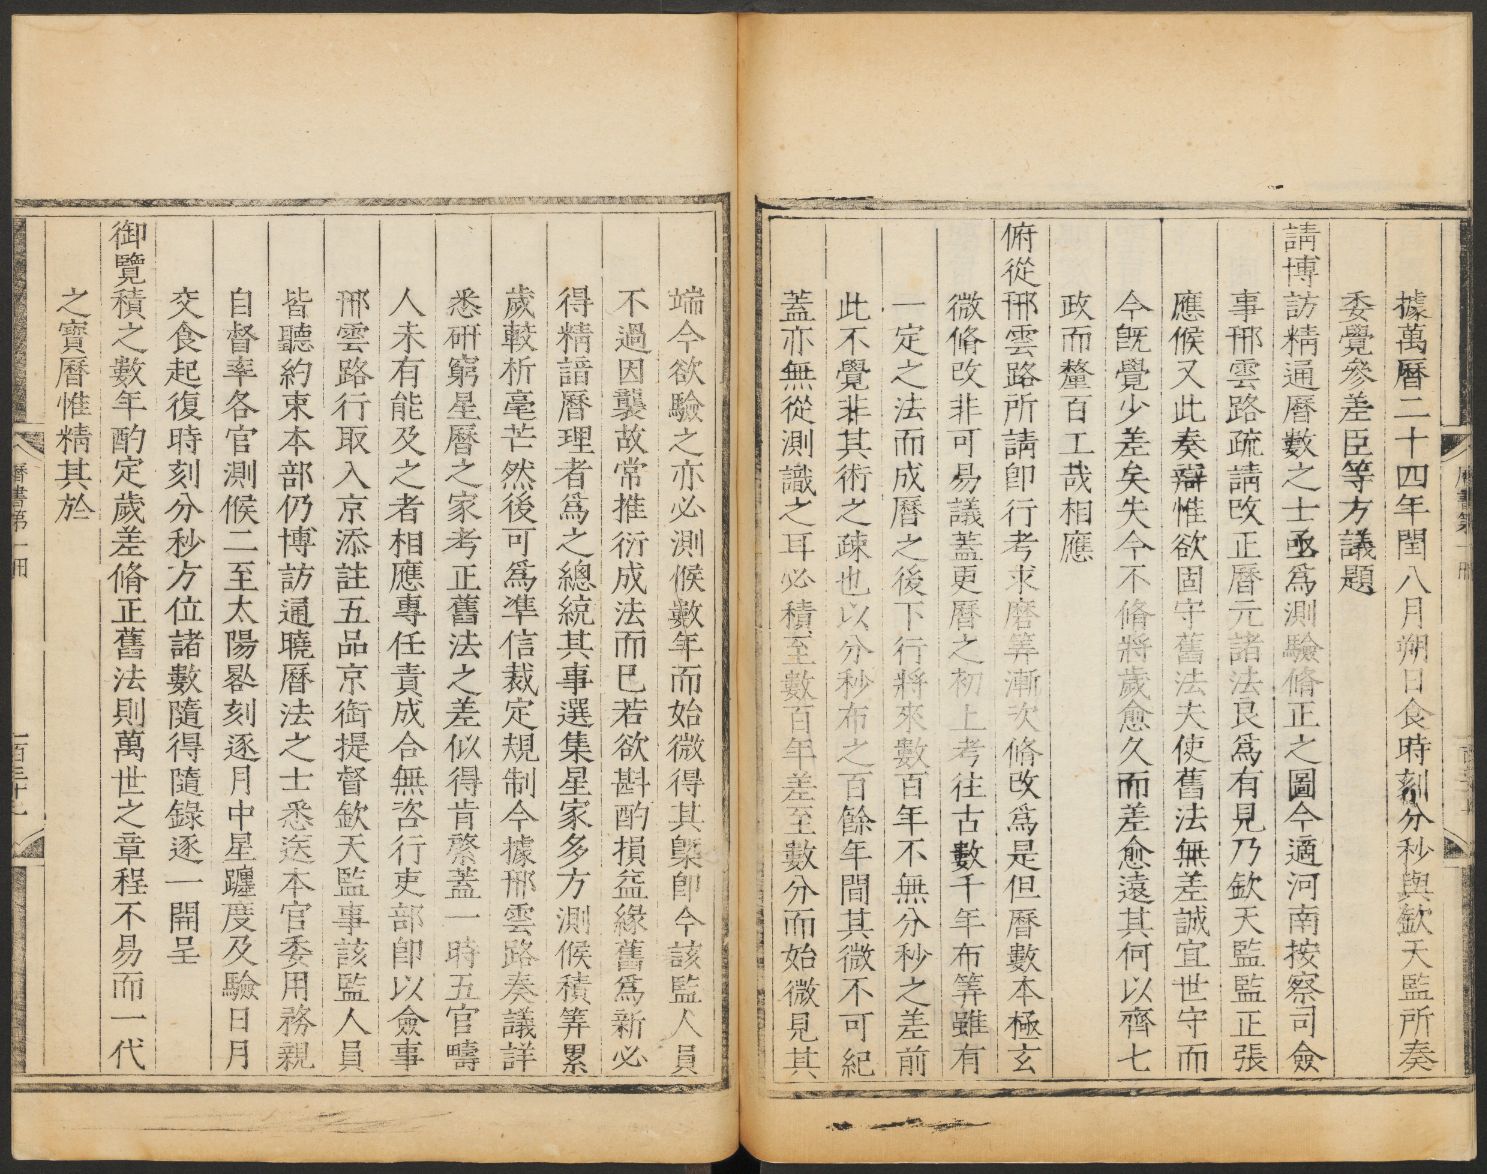 據萬曆二十四年閏八月朔日食時刻分秒與欽天監所奏
委覺參差臣等方議題
請博訪精通曆數之士亟爲測驗脩正之圖今適河南按察司僉
事邢雲路疏請改正曆元諸法良爲有見乃欽天監監正張
應候又此奏辯惟欲固守舊法夫使舊法無差誠宜世守而
今旣覺少差矣失今不脩將歲愈久而差愈遠其何以齊七
政而釐百工哉相應
俯從邢雲路所請卽行考求磨筭漸次脩改爲是但曆數本極玄
微脩改非可易議蓋更曆之初上考往古數千年布筭雖有
一定之法而成曆之後下行將來數百年不無分秒之差前
此不覺非其術之疎也以分秒布之百餘年間其微不可紀
蓋亦無從測識之耳必積至數百年差至數分而始微見其
端今欲驗之亦必測候數年而始微得其槩卽今該監人員
不過因襲故常推衍成法而巳若欲斟酌損益緣舊爲新必
得精諳曆理者爲之總統其事選集星家多方測候積筭累
歲較析毫芒然後可爲準信裁定規制今據邢雲路奏議詳
悉研窮星曆之家考正舊法之差似得肯綮蓋一時五官疇
人未有能及之者相應專任責成合無咨行吏部卽以僉事
邢雲路行取入京添註五品京銜提督欽天監事該監人員
皆聽約束本部仍博訪通曉曆法之士悉送本官委用務親
自督率各官測候二至太陽晷刻逐月中星躔度及驗日月
交食起復時刻分秒方位諸數隨得隨錄逐一開呈
御覽積之數年酌定歲差脩正舊法則萬世之章程不易而一代
之寶曆惟精其於
曆書第一册